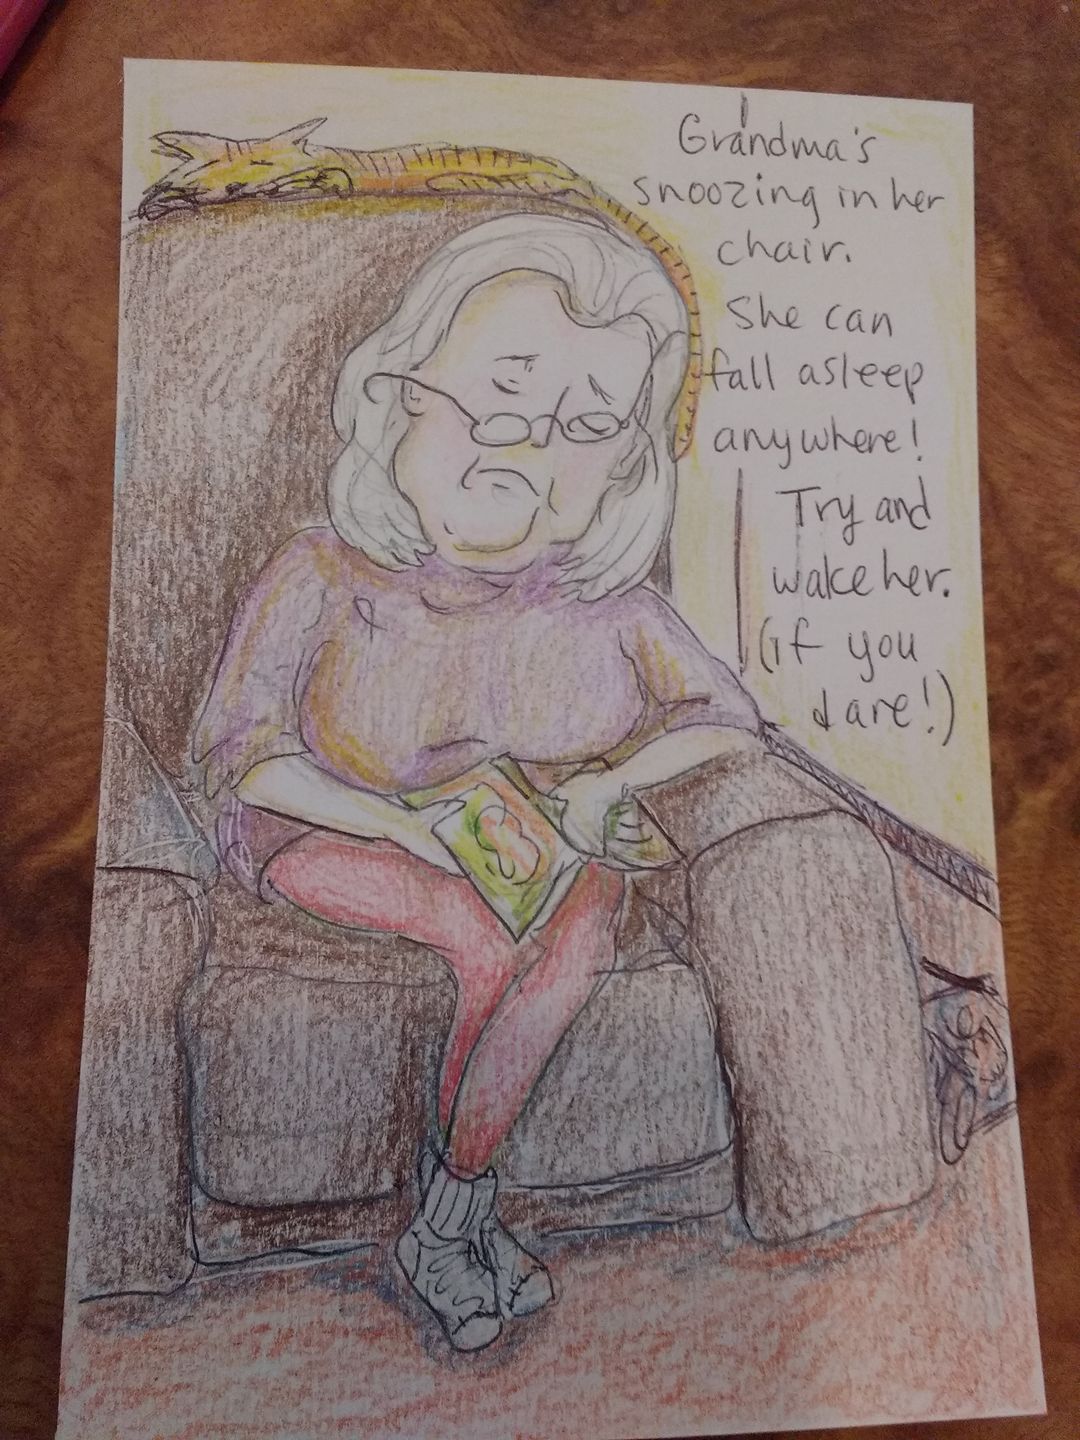 Grandma's
snoozing in her
chair.
She can
fall asleep
anywhere!
Try and
wake her.
(if you
dare!)